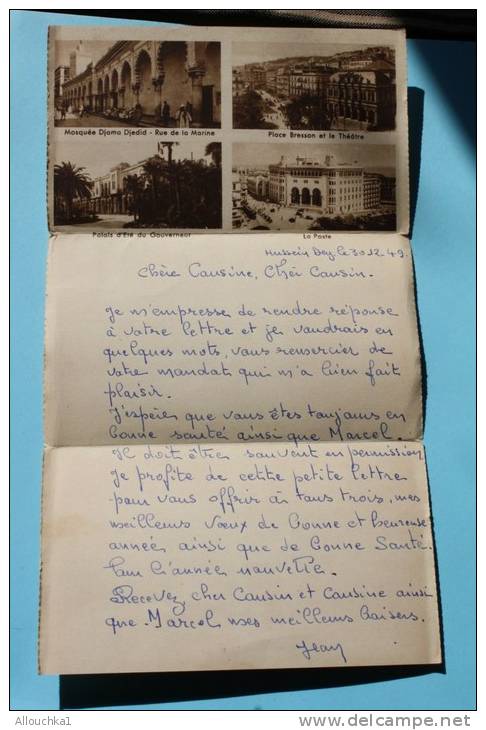 Mosquée Djama Djedid - Rue de la Marine
Place Bresson et le Théâtre
Palais d'Eté du Gouverneur
La Poste
Hussein Dey le 30.12.49.
Chère Cousine, Cher Cousin.
Je m'empresse de rendre réponse
à votre lettre et je voudrais en
quelques mots, vous remercier de
votre mandat qui m'a bien fait
plaisir.
J'espère que vous êtes toujours en
bonne santé ainsi que Marcel.
Il doit être souvent en permission
Je profite de cette petite lettre
pour vous offrir à tous trois, mes
meilleurs vœux de bonne et heureuse
année ainsi que de bonne Santé.
Pour l'année nouvelle.
Recevez cher Cousin et Cousine ainsi
que Marcel mes meilleurs baisers.
Jean
Allouchka1
www.delcampe.net